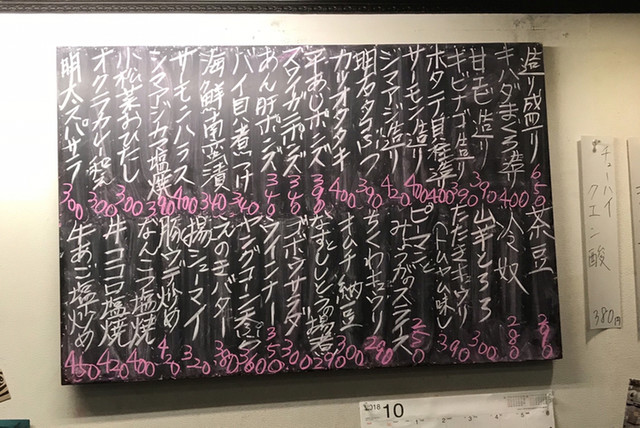 造り盛り 650
キハダまぐろ造り 400
甘エビ造り 390
キビナゴ造り 390
ホタテ貝柱造り 400
サーモン造り 400
シマアジ造り 420
明石タコぶつ 400
カツオタタキ 400
平あじポンズ
ズワイガニポンズ 340
あん肝ポンズ 340
バイ貝煮つけ 340
海鮮南蛮漬 340
サーモンハラス 400
シマアジカマ塩焼 390
小松菜おひたし 300
オクラカレー和え 300
明太スパサラ 300
茶豆
冷奴 280
山芋とろろ 300
たたきキュウリ
(トムヤム味) 390
ピーマンと
みょうがのスライス 250
ちくわキュウリ
オムチ納豆 300
なすとししとうの揚煮 290
ゴボウサラダ 300
ウインナー 350
ヤングコーン天プラ 360
揚シューマイ 320
豚キムチ炒め 420
なんこつ塩焼 400
牛ココロ塩焼 420
牛あご塩炒め 450
チューハイ
クエン酸
380円
2018 10